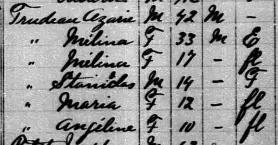 Trudeau Azarie M 42 M -
" Mélina F 33 M E
" Mélina F 17 - fl
" Stanislas M 14 - F
" Maria F 12 - fl
" Angéline F 10 - fl